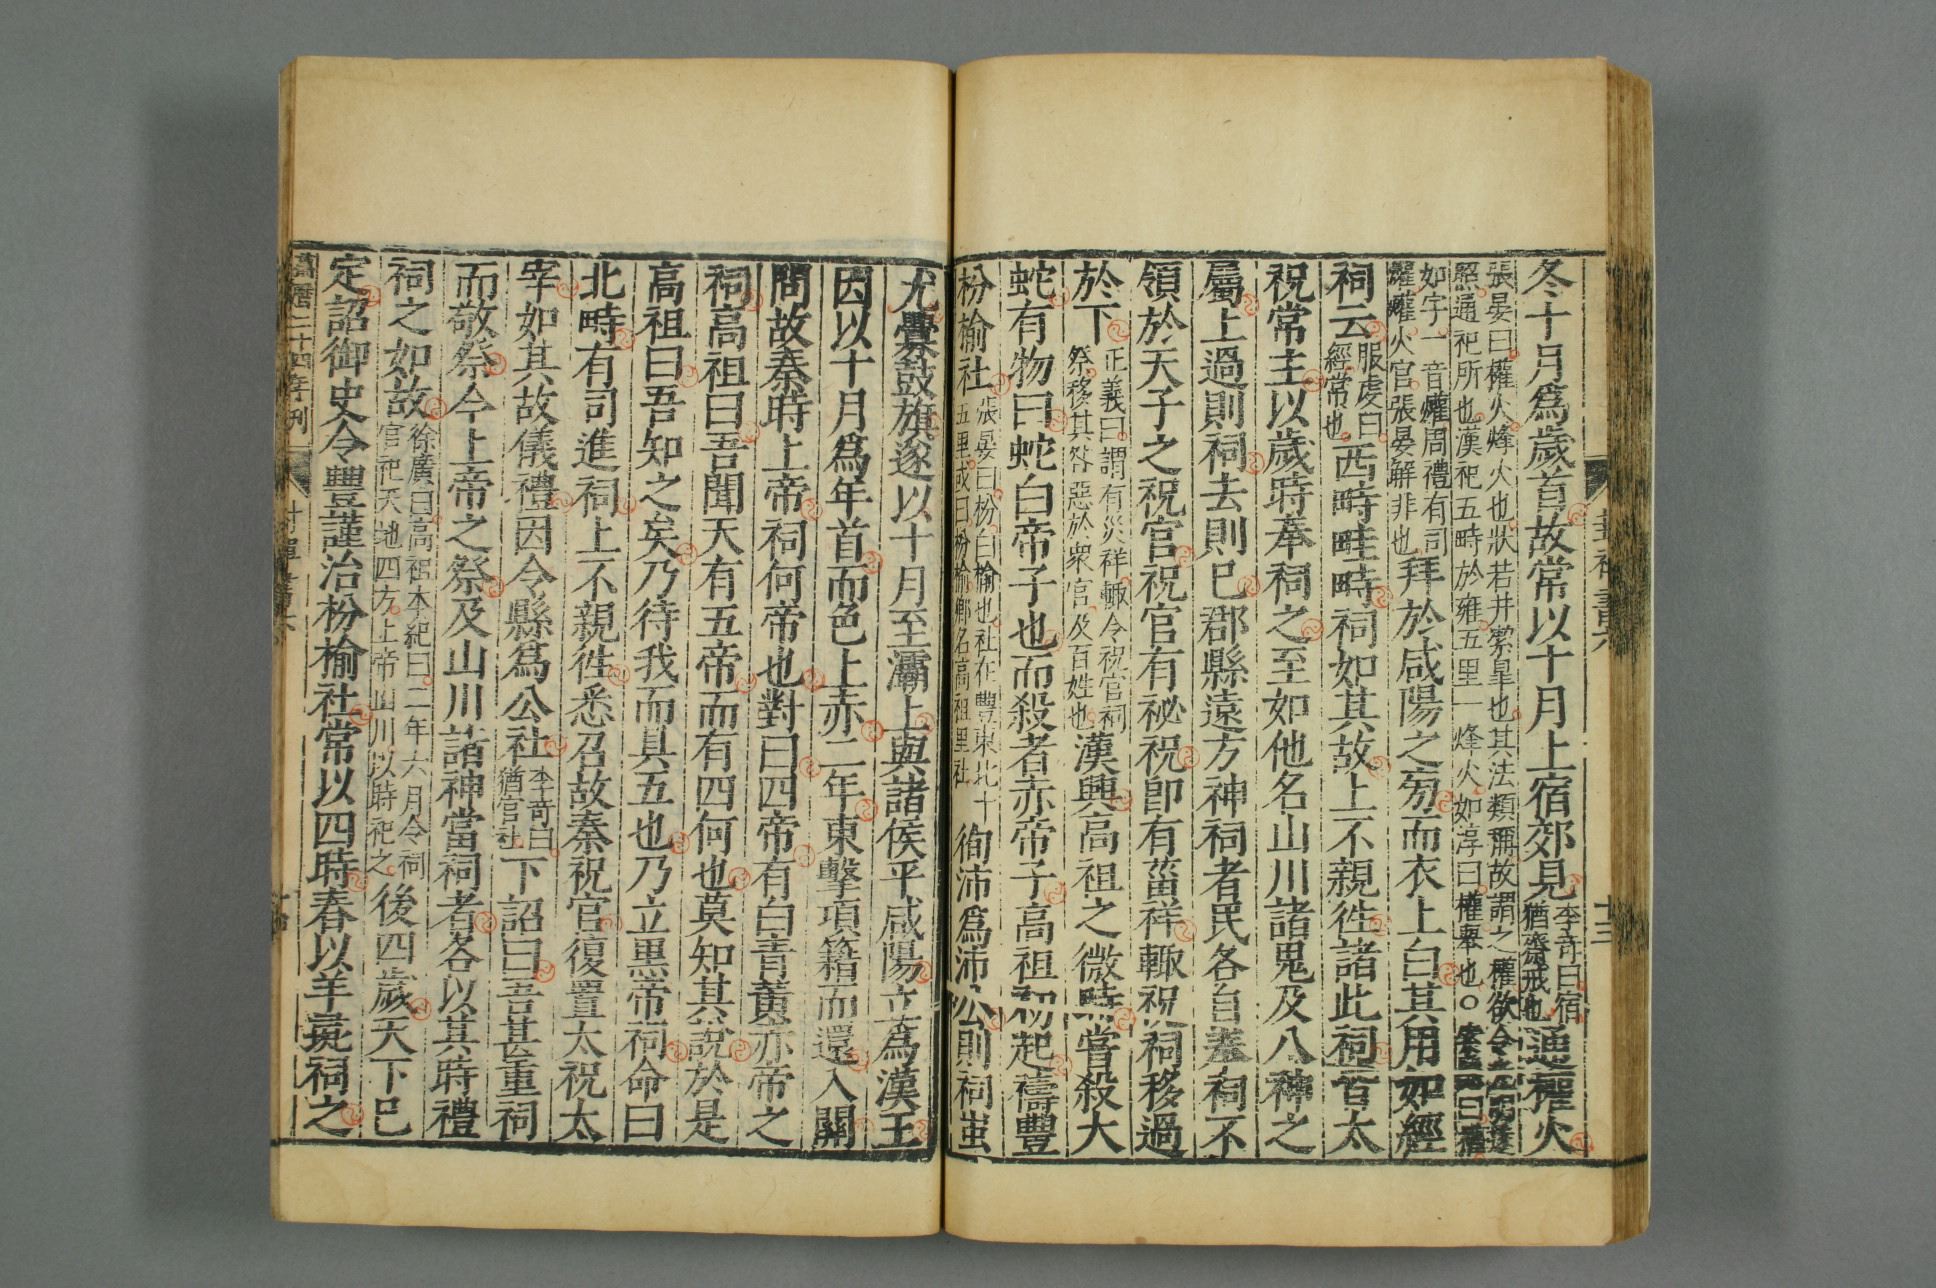 冬十月爲歲首故常以十月上宿郊見李竒曰宿猶齋戒也通權火
張晏曰權火烽火也狀若井㓗臯也其法類稱故謂之權欲令
照通祀所也漢祀五畤於雍五里一烽火如淳曰權舉也○
如字一音爟周禮有司爟爟火官張晏解非也拜於咸陽之旁而衣上白其用如經
祠云服虔曰經常也西畤畦畤祠如其故上不親徃諸此祠皆太
祝常主以歲時奉祠之至如他名山川諸鬼及八神之
屬上過則祠去則已郡縣遠方神祠者民各自奉祠不
領於天子之祝官祝官有祕祝卽有菑祥輒祝祠移過
於下正義曰謂有災祥輒令祝官祠祭移其咎惡於衆官及百姓也漢興高祖之微時嘗殺大
蛇有物曰蛇白帝子也而殺者赤帝子高祖初起禱豐
枌榆社張晏曰枌白榆也社在豐東北十五里或曰枌榆鄉名高祖里社徇沛爲沛公則祠蚩
尤釁鼓旗遂以十月至灞上與諸侯平咸陽立爲漢王
因以十月爲年首而色上赤二年東擊項籍而還入關
問故秦時上帝祠何帝也對曰四帝有白青黄赤帝之
祠高祖曰吾聞天有五帝而有四何也莫知其說於是
高祖曰吾知之矣乃待我而具五也乃立黑帝祠命曰
北畤有司進祠上不親徃悉召故秦祝官復置太祝太
宰如其故儀禮因令縣爲公社李竒曰猶官社下詔曰吾甚重祠
而敬祭今上帝之祭及山川諸神當祠者各以其時禮
祠之如故徐廣曰高祖本紀曰二年六月令祠官祀天地四方上帝山川以時祀之後四歲天下已
定詔御史令豐謹治枌榆社常以四時春以羊彘祠之